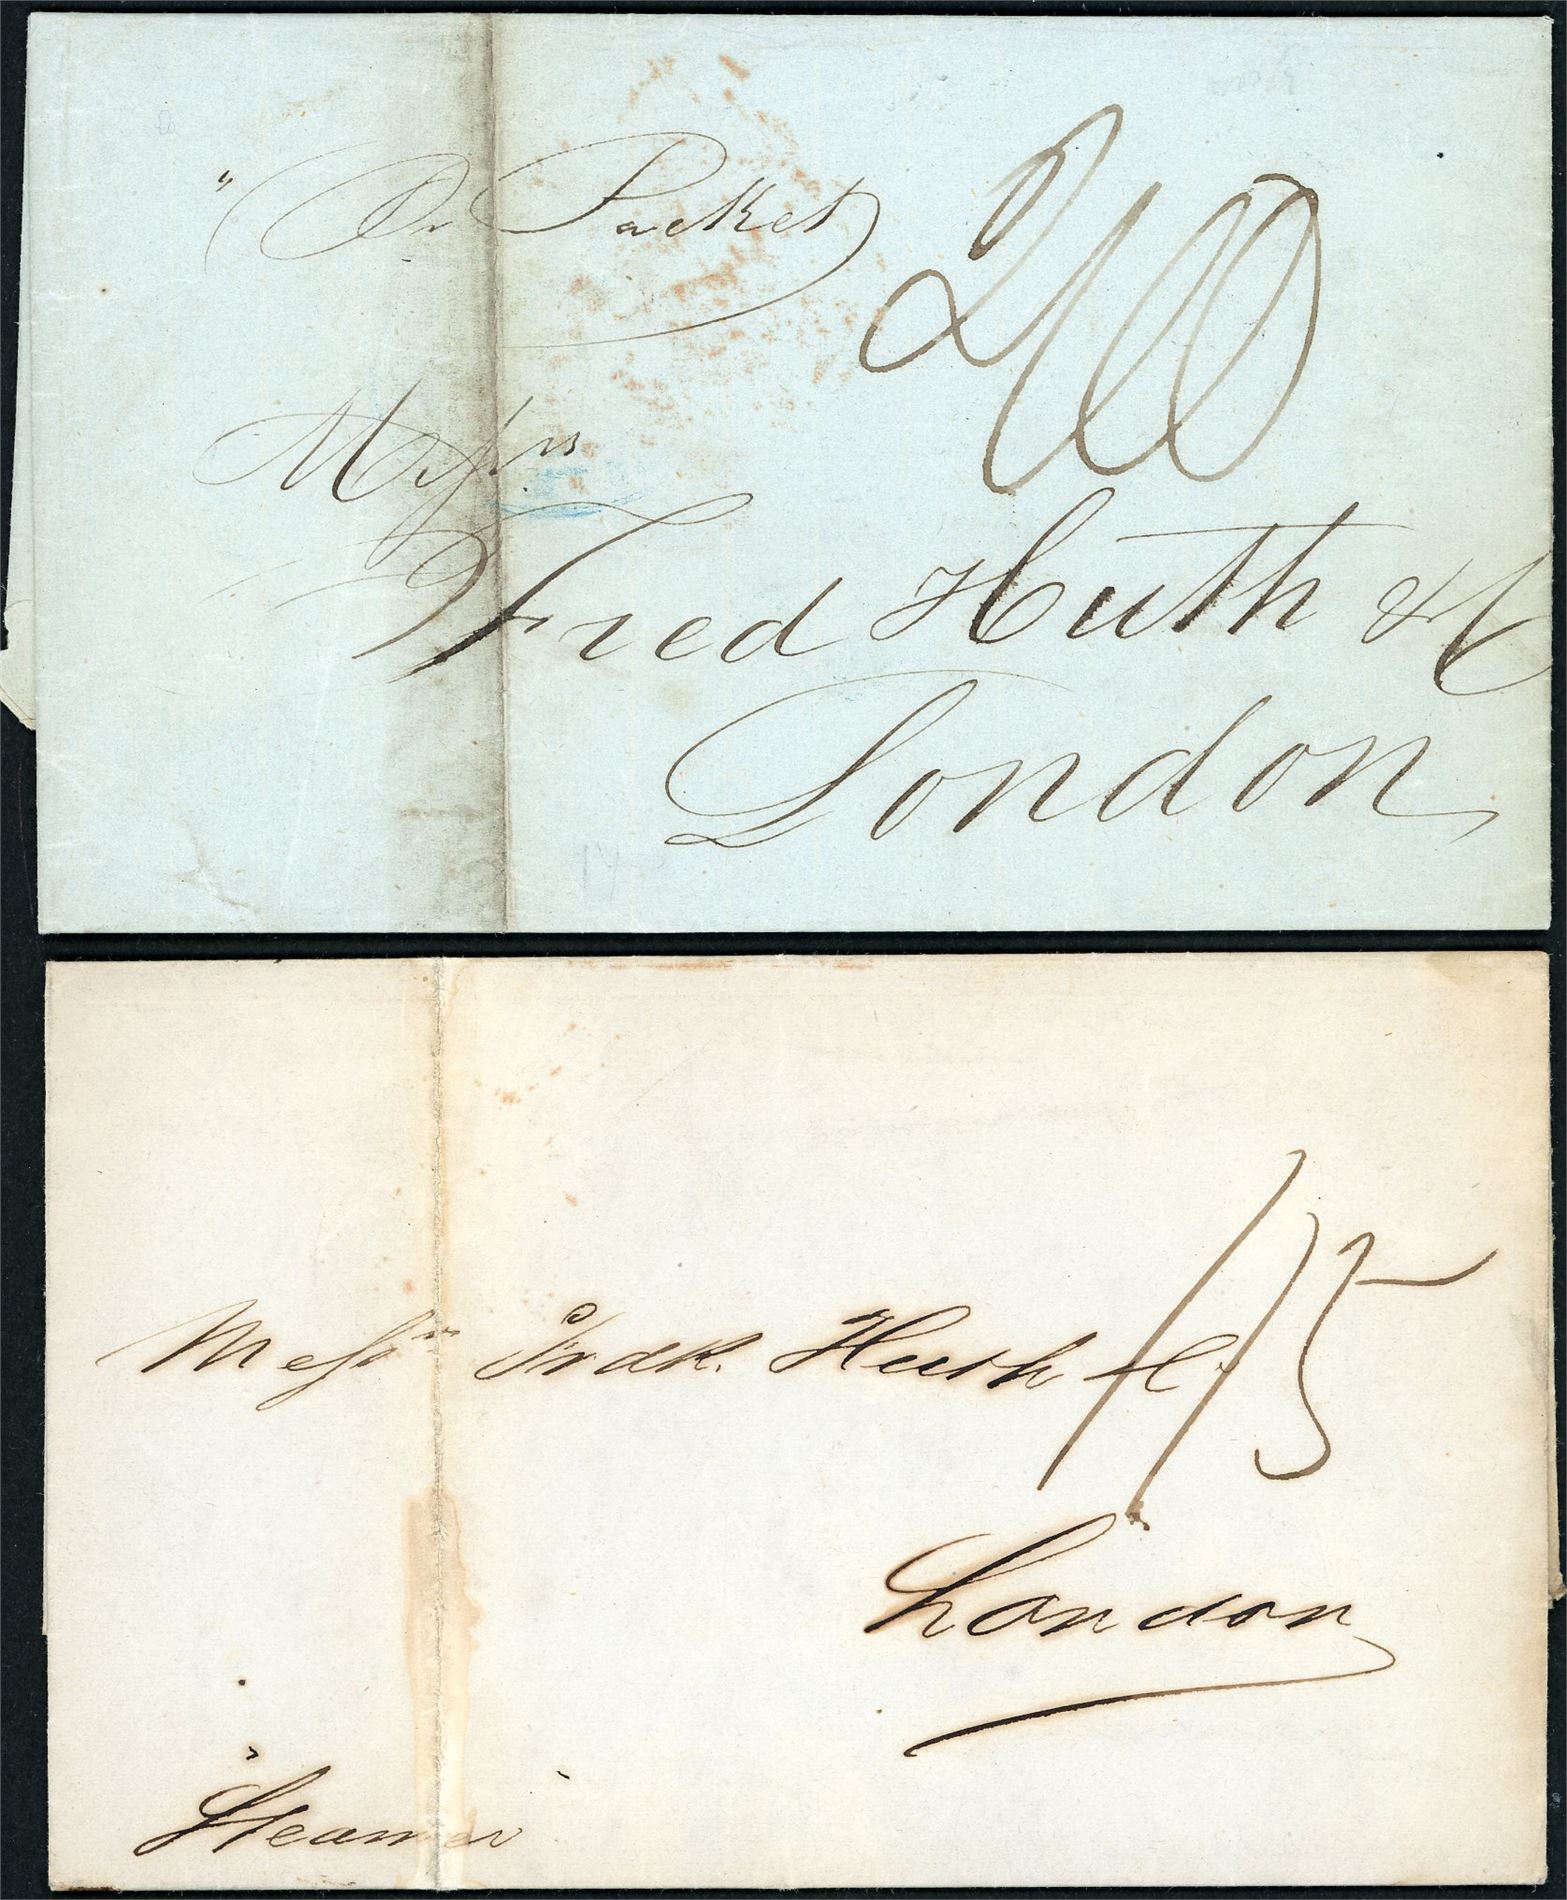 "Pr Packet
2/10
Messrs
Fred Huth & C
London
Messrs Fredk. Huth & Co.
1/5
London
"Steamer"